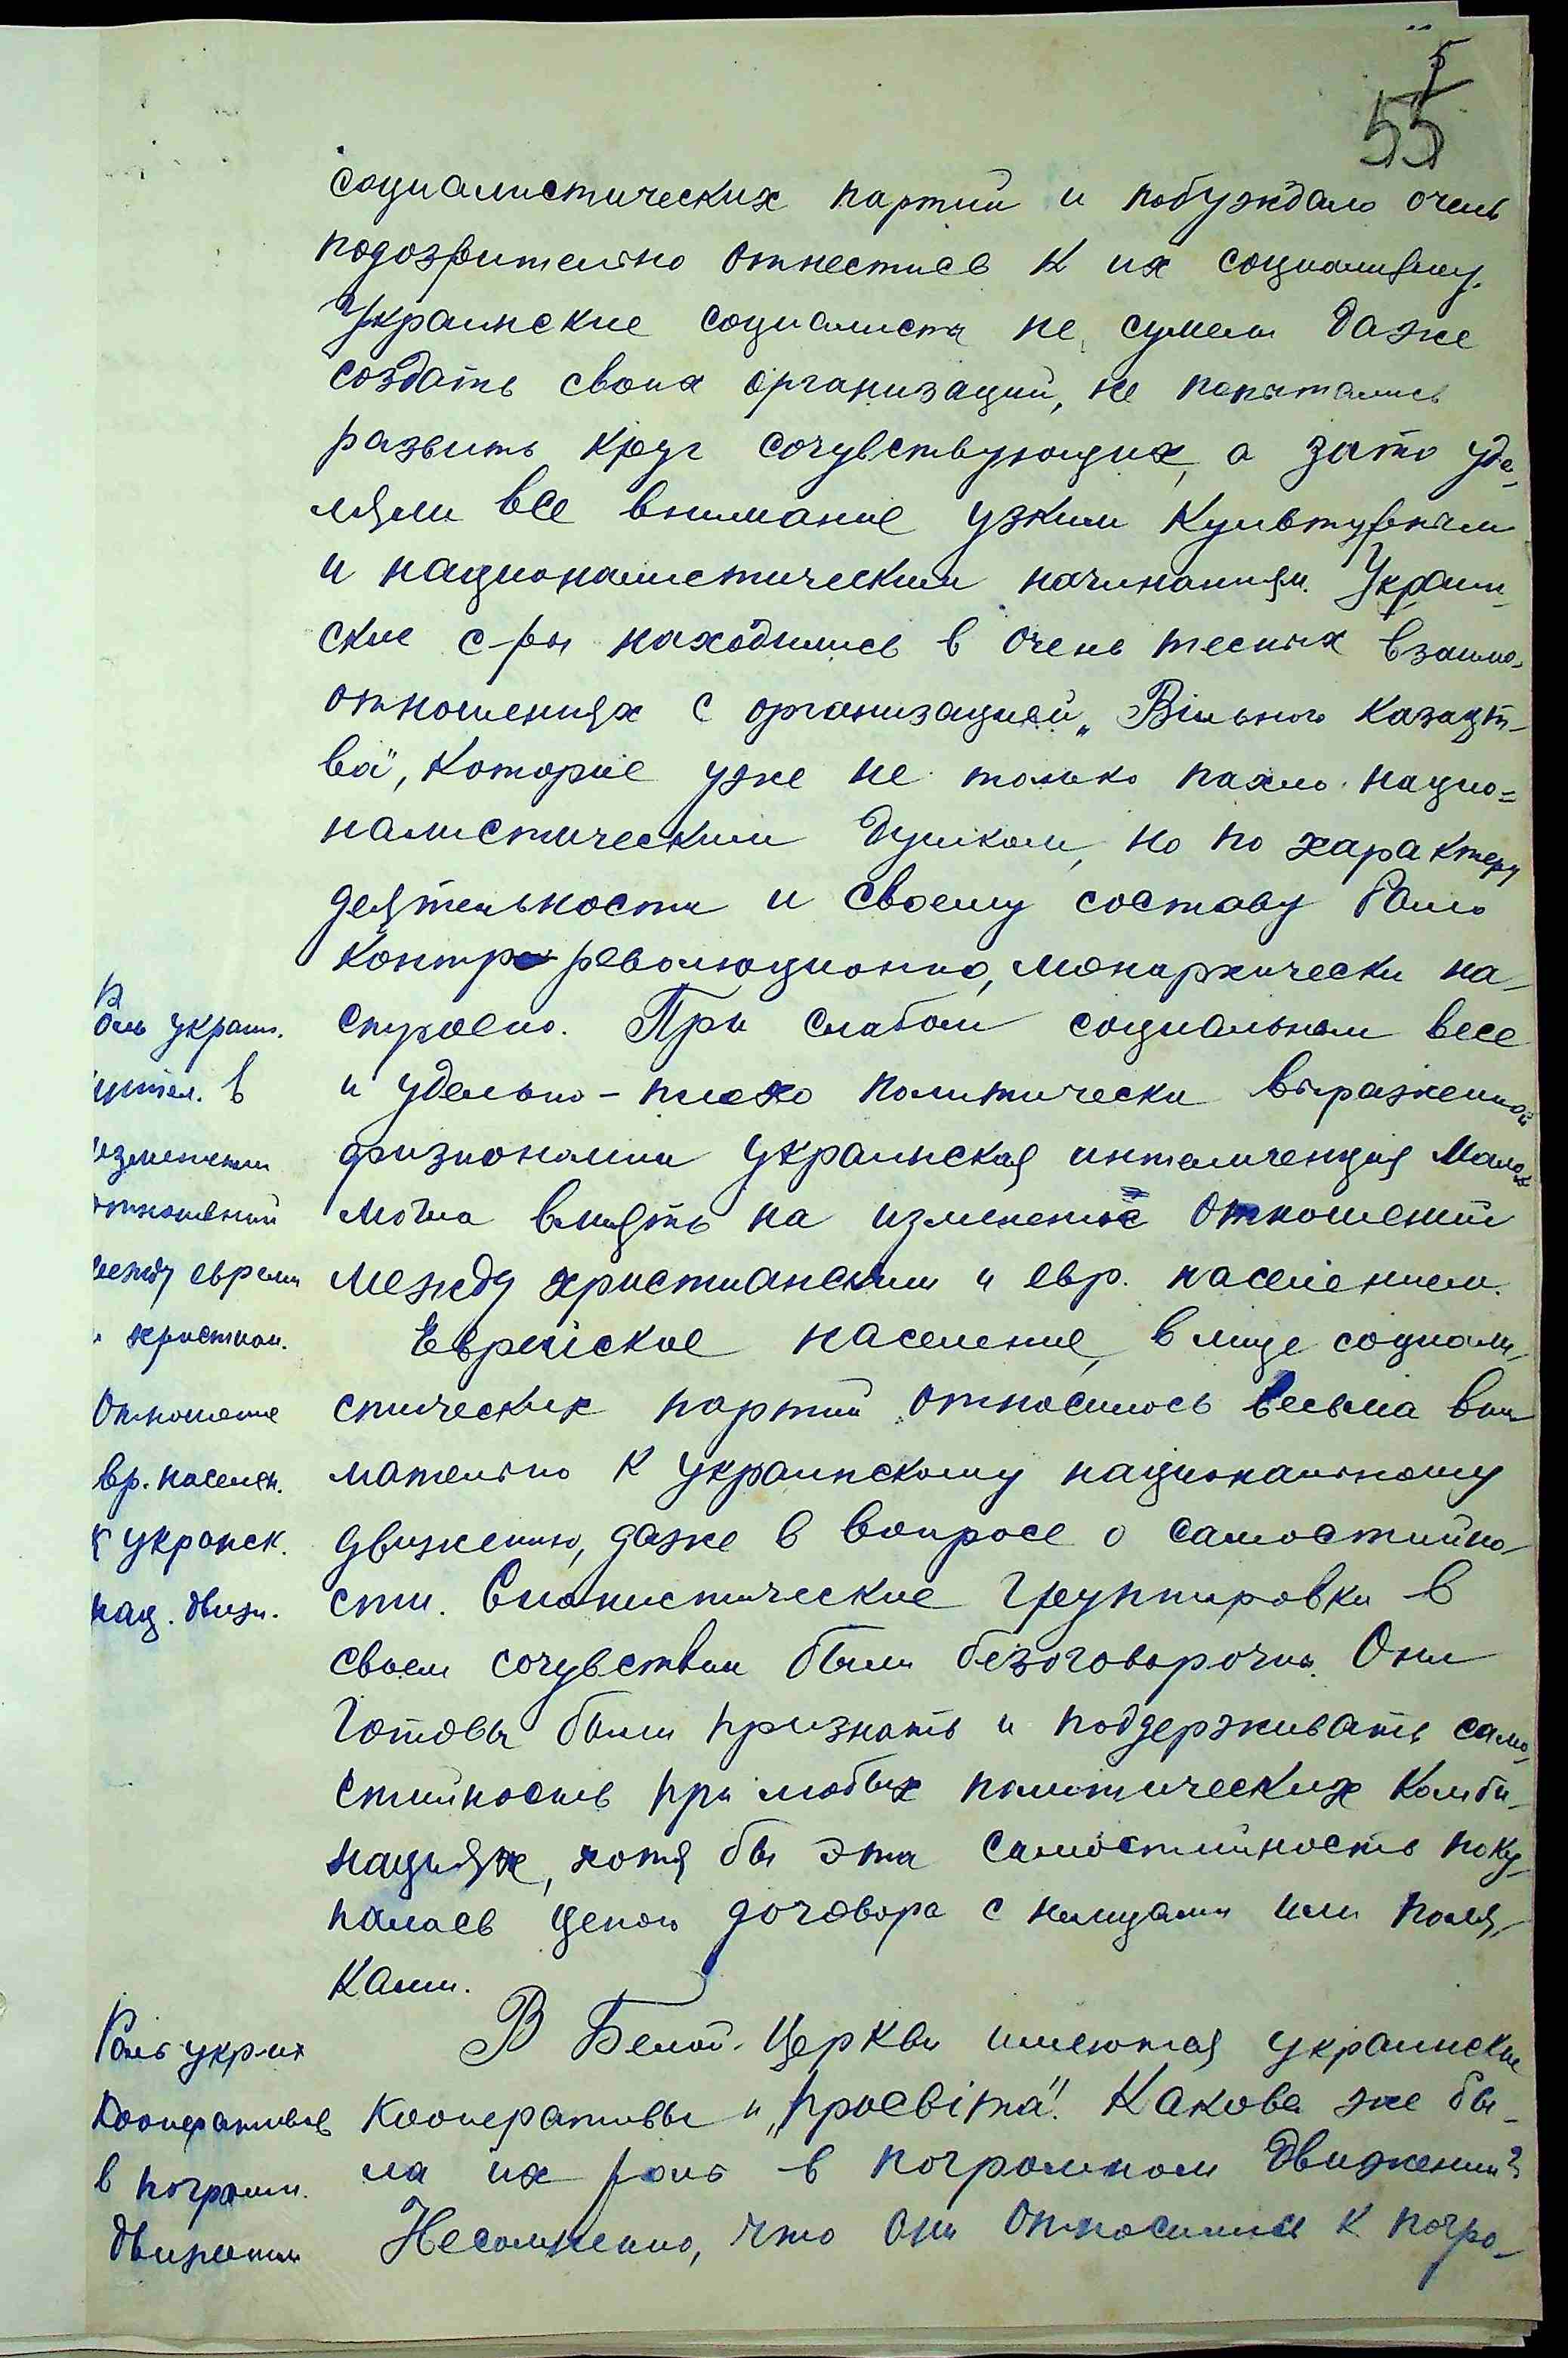 5
55
социалистических партий и побуждало очень
подозрительно отнестись к их социализму.
Украинские социалисты не сумели даже
создать своих организаций, не попытались
развить круг сочувствующих, а зато уде-
ляли все внимание узким культурным
и националистическим начинаниям. Украин-
ские с-ры находились в очень тесных взаимо-
отношениях с организацией „Вільного казацт-
ва", которые уже не только пахло нацио=
налистическим душком, но по характеру
деятельности и своему составу было
контр-революционно, монархически на-
строено. При слабом социальном весе
и удельно-плохо политически выраженной
физиономии украинская интеллигенция мало
могла влиять на изменение отношений
между христианским и евр. населением.
Еврейское население, в лице социали-
стических партий относилось весьма вни
мательно к украинскому национальному
движению, даже в вопросе о самостийно-
сти. Сионистические группировки в
своем сочувствии были безоговорочны. Они
готовы были признать и поддерживать само-
стийность при любых политических комби-
нациях, хотя бы эта самостийность поку-
палась ценою договора с немцами или поля-
ками.
В Белой-Церкви имеются украинские
кооперативы и „просвіта". Какова же бы-
ла их роль в погромном движении?
Несомненно, что они относились к погро-
Роль украин.
интел. в
изменении
отношений
между евреями
и христиан.
Отношение
евр. населен.
к украинск.
нац. движ.
Роль укр-их
кооперативов
в погромн.
движении